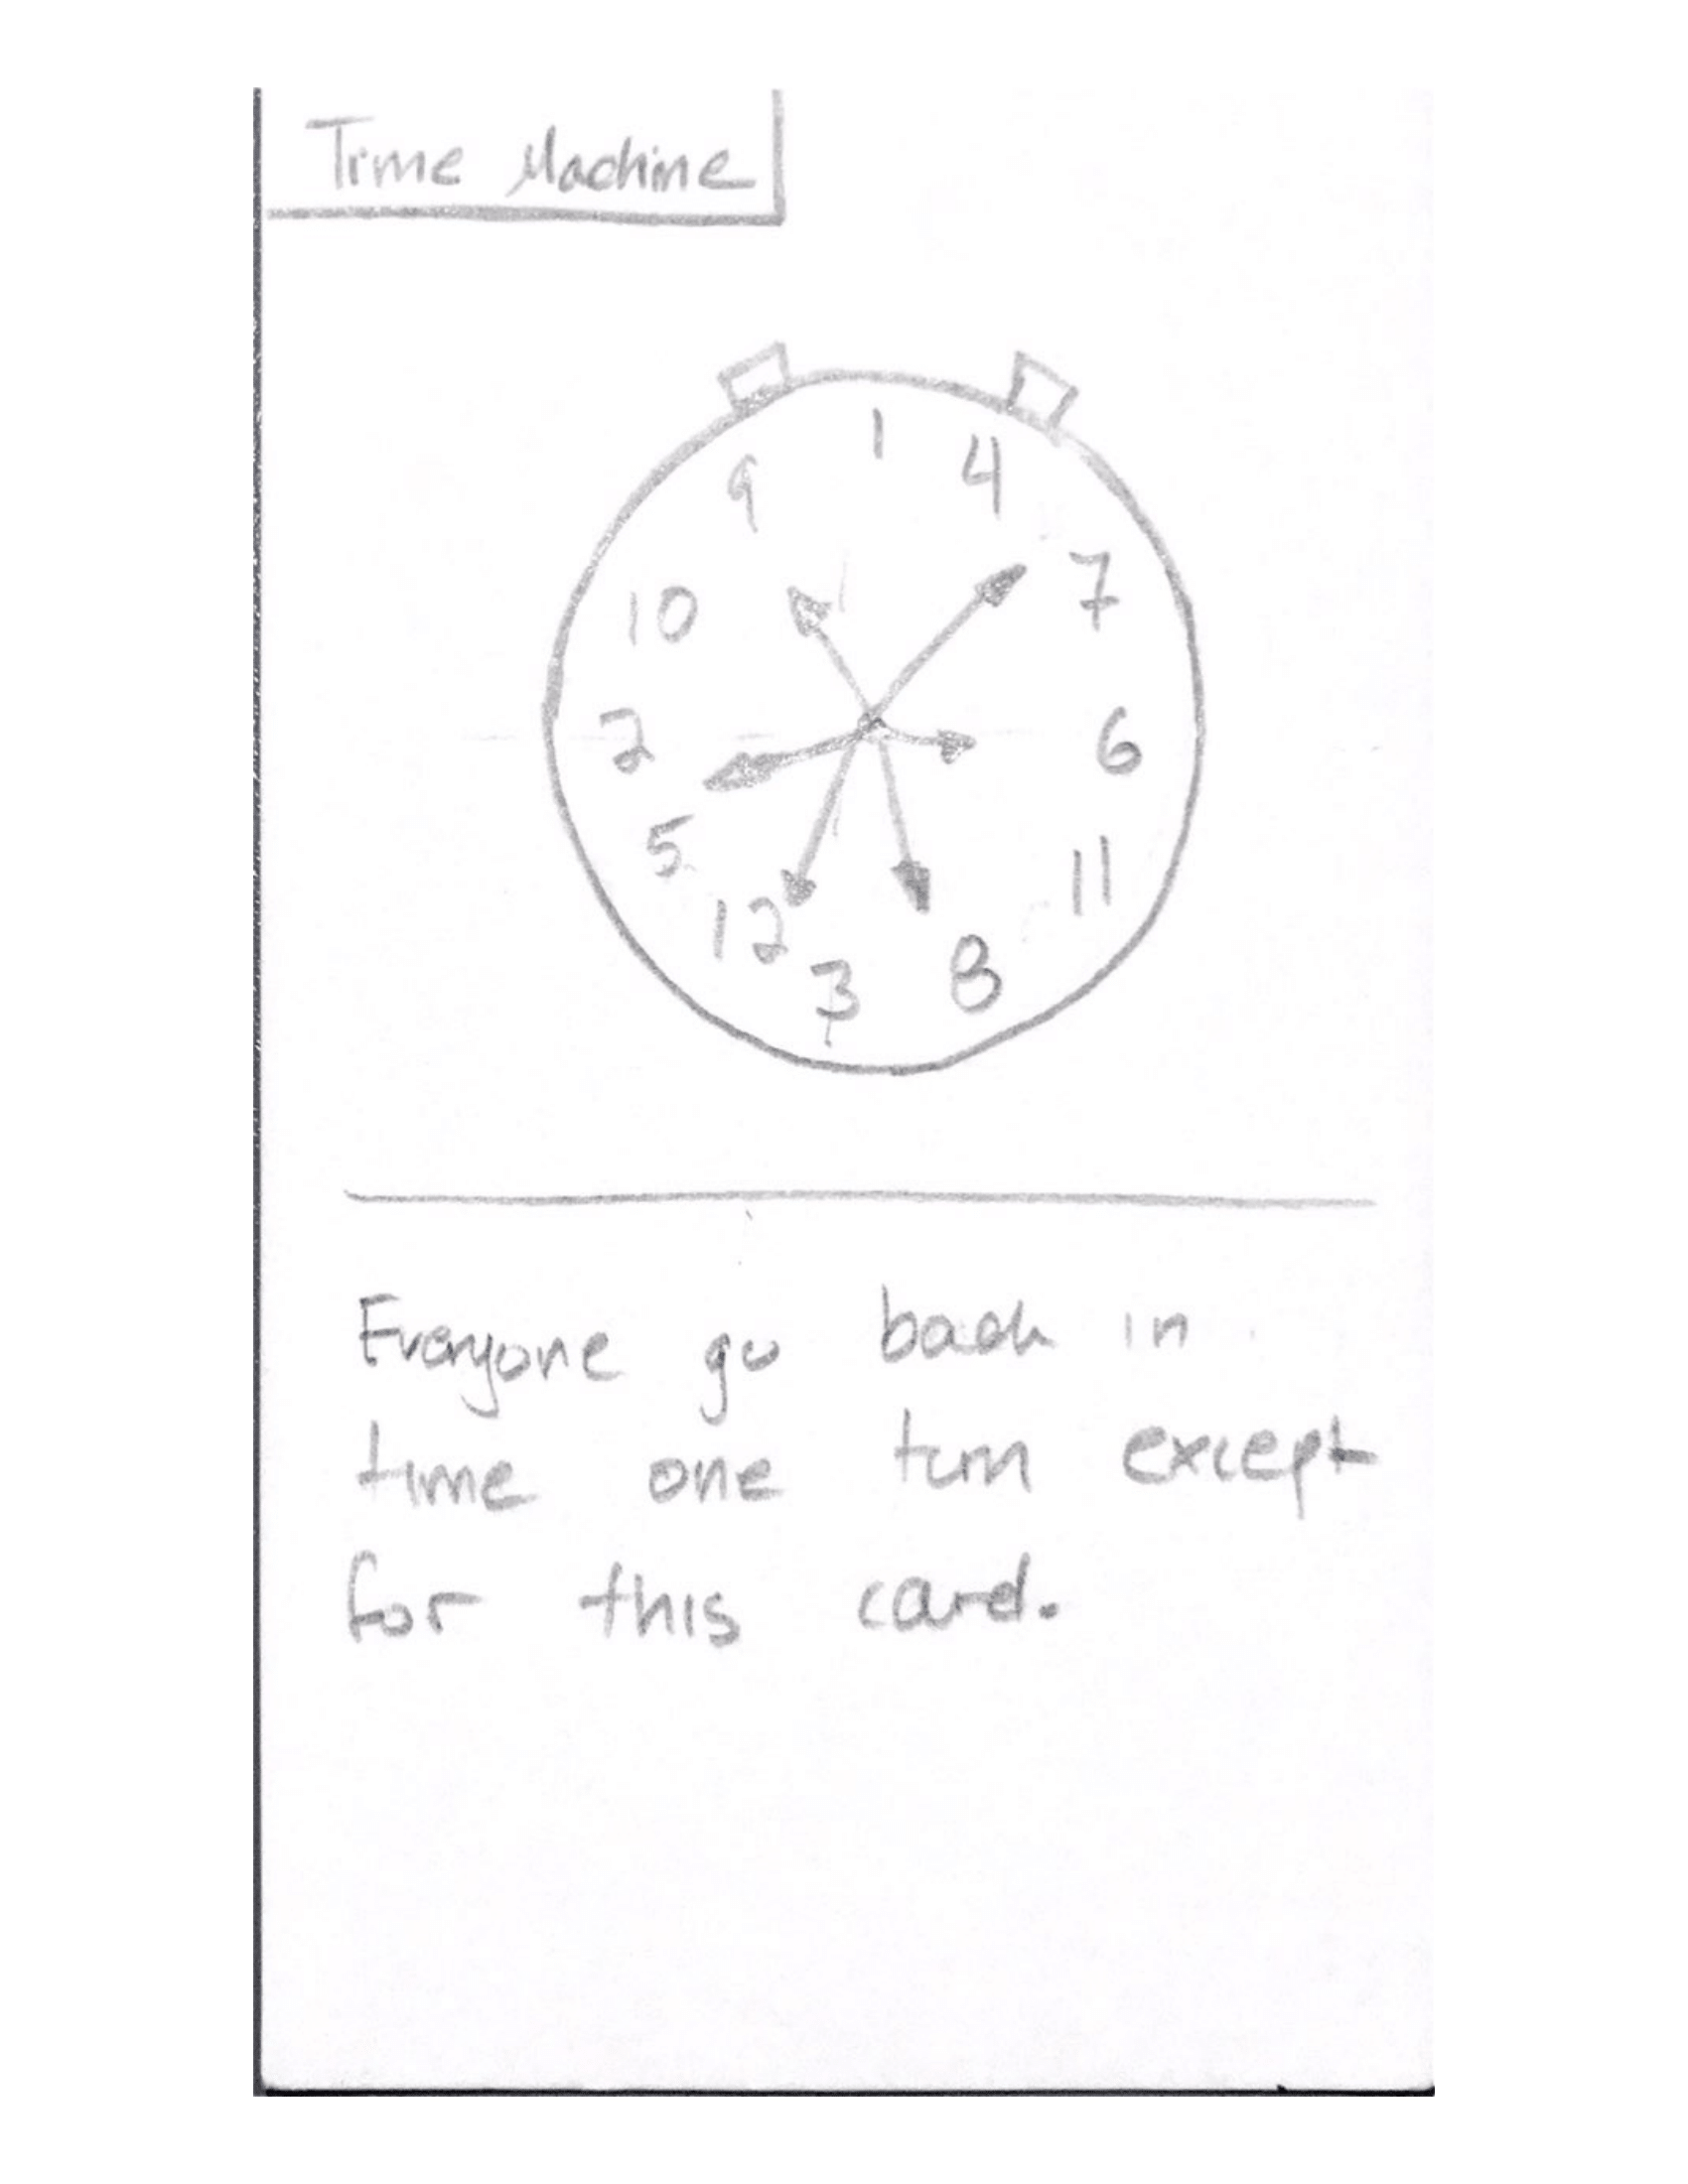 Time Machine
1
9 4
10 7
2 6
5 11
12 8
3
Everyone go back in
time one turn except
for this card.